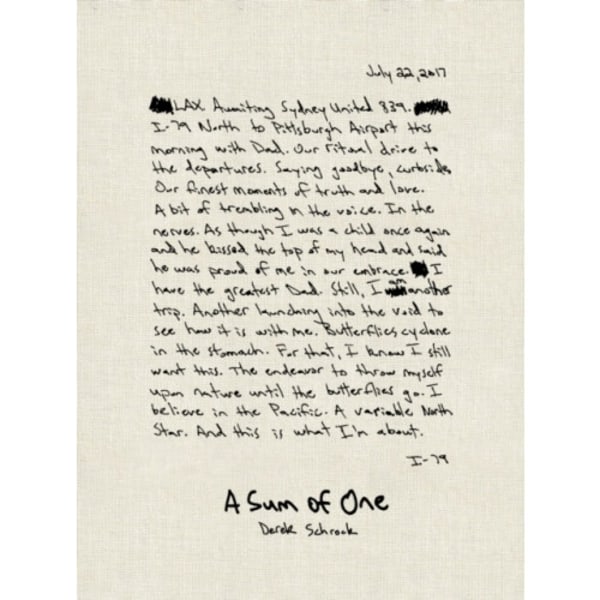 July 22, 2017
LAX. Awaiting Sydney United 839.
I-79 North to Pittsburgh Airport this
morning with Dad. Our ritual drive to
the departures. Saying goodbye, curbside.
Our finest moments of truth and love.
A bit of trembling in the voice. In the
nerves. As though I was a child once again
and he kissed the top of my head and said
he was proud of me in our embrace. I
have the greatest Dad. Still, I am another
trip. Another launching into the void to
see how it is with me. Butterflies cyclone
in the stomach. For that, I know I still
want this. The endeavor to throw myself
upon nature until the butterflies go. I
believe in the Pacific. A variable North
Star. And this is what I'm about.
I-79
A Sum of One
Derek Schrock